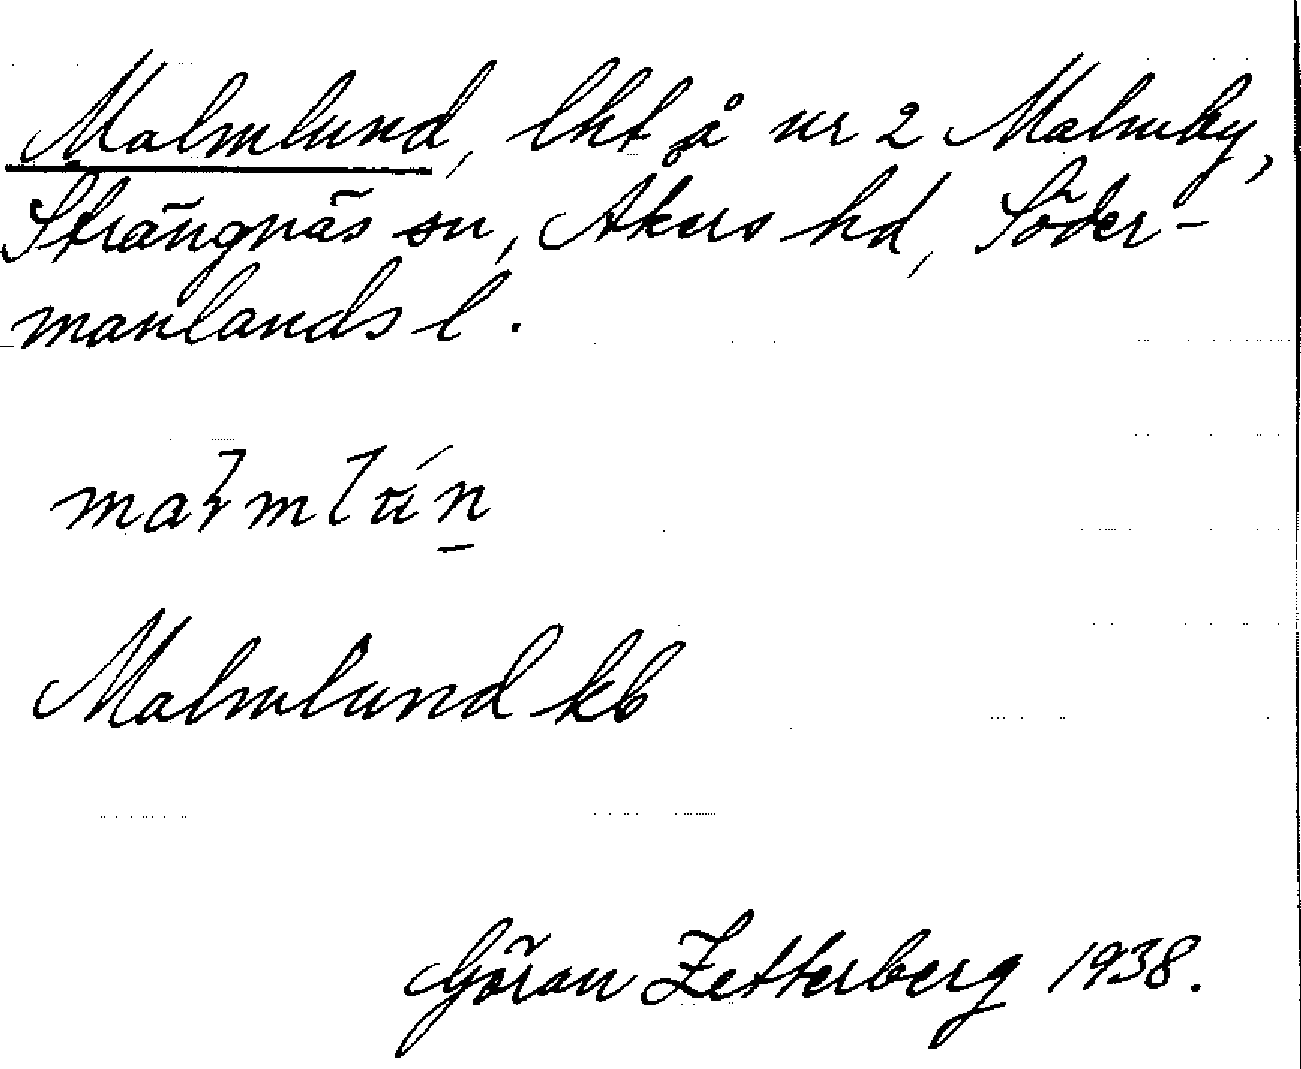 Malmlund, lht å nr 2 Malmby,
Strängnäs sn, Åkers hd, Söder-
manlands l.
Malmlund kb
Göran Zetterberg 1938.